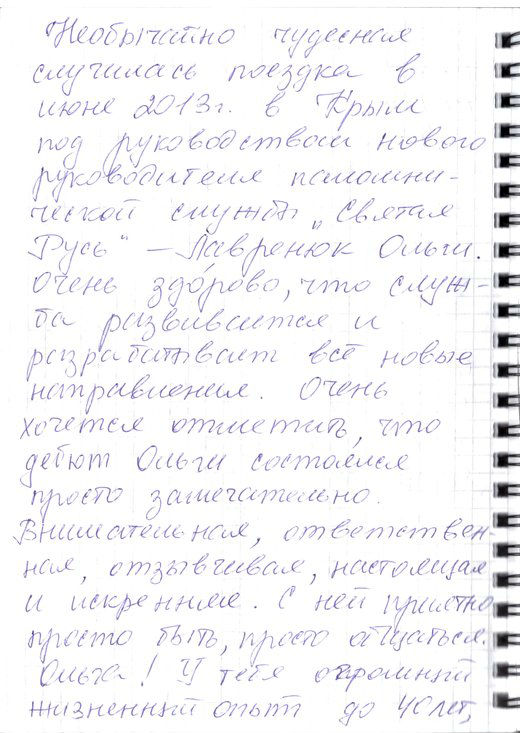 Необычайно чудесная
случилась поездка в
июне 2013г. в Крым
под руководством нового
руководителя паломни-
ческой службы „Святая
Русь" – Лавренюк Ольги.
Очень здорово, что служ-
ба развивается и
разрабатывает всё новые
направления. Очень
хочется отметить, что
дебют Ольги состоялся
просто замечательно.
Внимательная, ответствен-
ная, отзывчивая, настоящая
и искренняя. С ней приятно
просто быть, просто общаться.
Ольга! У тебя огромный
жизненный опыт до 40 лет,